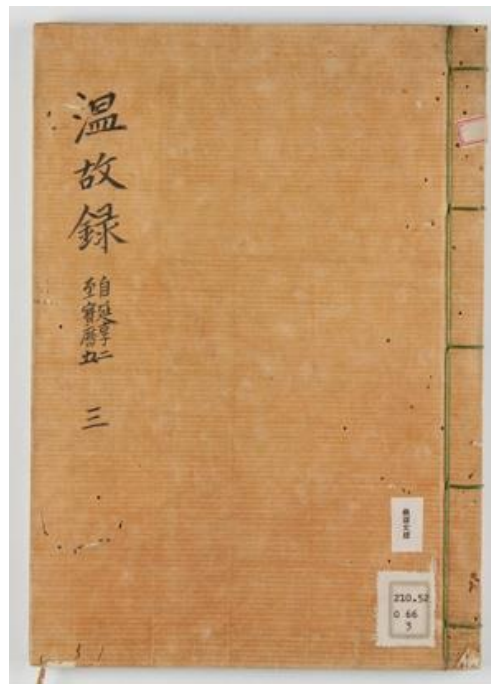 温故録
自延享二
至寳暦五
三
210.52
O 66
3